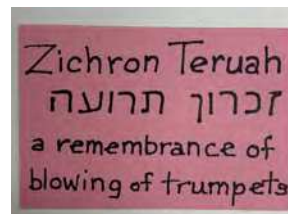 Zichron Teruah
זכרון תרועה
a remembrance of
blowing of trumpets